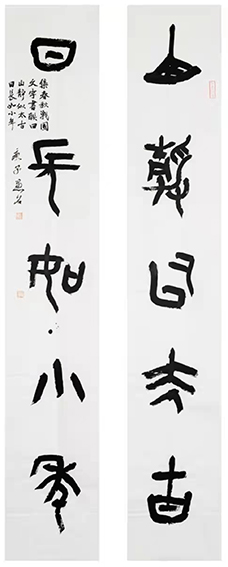 山靜㠯大古
日長如小年
集春秋戰國
文字書聯曰
山靜似太古
日長如小年
庚子